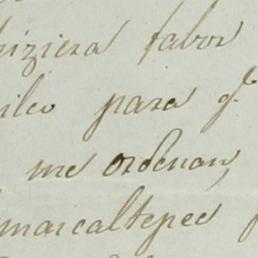 hiziera fabor
ileo para q.e
me ordenan,
marcaltepec